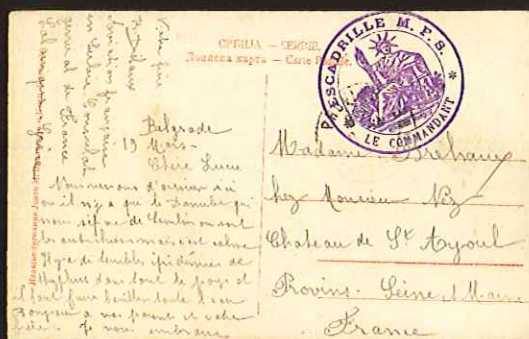 СРБИЈА — SERBIE.
Дописна карта — Carte Postale.
ESCADRILLE M. F. S.
LE COMMANDANT
Votre frère
Aviation française
en Serbie Consulat
général de France
Belgrade
13 Mars
Chère Lucie
Nous venons d'arriver ici
où il n'y a que le Danube qui
nous sépare de Semlin où sont
les autrichiens mais c'est calme
Il y a de terribles épidémies de
typhus dans tout le pays et
il faut faire bouillir toute l'eau
Bonjour à vos parents et votre
frère. Je vous embrasse
Madame Bréhaux
chez Monsieur
Chateau de St Ayoul
Provins. Seine et Marne
France